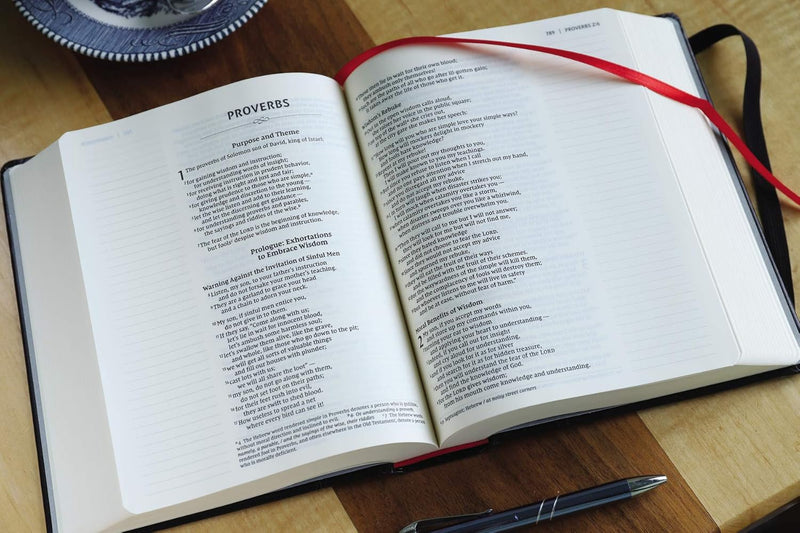 PROVERBS
Purpose and Theme
1 The proverbs of Solomon son of David, king of Israel:
2 for gaining wisdom and instruction;
for understanding words of insight;
3 for receiving instruction in prudent behavior,
doing what is right and just and fair;
4 for giving prudence to those who are simple,a
knowledge and discretion to the young —
5 let the wise listen and add to their learning,
and let the discerning get guidance —
6 for understanding proverbs and parables,
the sayings and riddles of the wise.b
7 The fear of the LORD is the beginning of knowledge,
but foolsc despise wisdom and instruction.
Prologue: Exhortations
to Embrace Wisdom
Warning Against the Invitation of Sinful Men
8 Listen, my son, to your father's instruction
and do not forsake your mother's teaching.
9 They are a garland to grace your head
and a chain to adorn your neck.
10 My son, if sinful men entice you,
do not give in to them.
11 If they say, "Come along with us;
let's lie in wait for innocent blood,
let's ambush some harmless soul;
12 let's swallow them alive, like the grave,
and whole, like those who go down to the pit;
13 we will get all sorts of valuable things
and fill our houses with plunder;
14 cast lots with us;
we will all share the loot" —
15 my son, do not go along with them,
do not set foot on their paths;
16 for their feet rush into evil,
they are swift to shed blood.
17 How useless to spread a net
where every bird can see it!
a 4 The Hebrew word rendered simple in Proverbs denotes a person who is gullible,
without moral direction and inclined to evil. b 6 Or understanding a proverb,
namely, a parable, / and the sayings of the wise, their riddles c 7 The Hebrew words
rendered fool in Proverbs, and often elsewhere in the Old Testament, denote a person
who is morally deficient.
789 | PROVERBS 2:6
18 These men lie in wait for their own blood;
they ambush only themselves!
19 Such are the paths of all who go after ill-gotten gain;
it takes away the life of those who get it.
Wisdom's Rebuke
20 Out in the open wisdom calls aloud,
she raises her voice in the public square;
21 on top of the wall she cries out,
at the city gate she makes her speech:
22 "How long will you who are simple love your simple ways?
How long will mockers delight in mockery
and fools hate knowledge?
23 Repent at my rebuke!
Then I will pour out my thoughts to you,
I will make known to you my teachings.
24 But since you refuse to listen when I call
and no one pays attention when I stretch out my hand,
25 since you disregard all my advice
and do not accept my rebuke,
26 I in turn will laugh when disaster strikes you;
I will mock when calamity overtakes you —
27 when calamity overtakes you like a storm,
when disaster sweeps over you like a whirlwind,
when distress and trouble overwhelm you.
28 "Then they will call to me but I will not answer;
they will look for me but will not find me,
29 since they hated knowledge
and did not choose to fear the LORD.
30 Since they would not accept my advice
and spurned my rebuke,
31 they will eat the fruit of their ways
and be filled with the fruit of their schemes.
32 For the waywardness of the simple will kill them,
and the complacency of fools will destroy them;
33 but whoever listens to me will live in safety
and be at ease, without fear of harm."
Moral Benefits of Wisdom
2 My son, if you accept my words
and store up my commands within you,
2 turning your ear to wisdom
and applying your heart to understanding —
3 indeed, if you call out for insight
and cry aloud for understanding,
4 and if you look for it as for silver
and search for it as for hidden treasure,
5 then you will understand the fear of the LORD
and find the knowledge of God.
6 For the LORD gives wisdom;
from his mouth come knowledge and understanding.
21 Septuagint; Hebrew / at noisy street corners